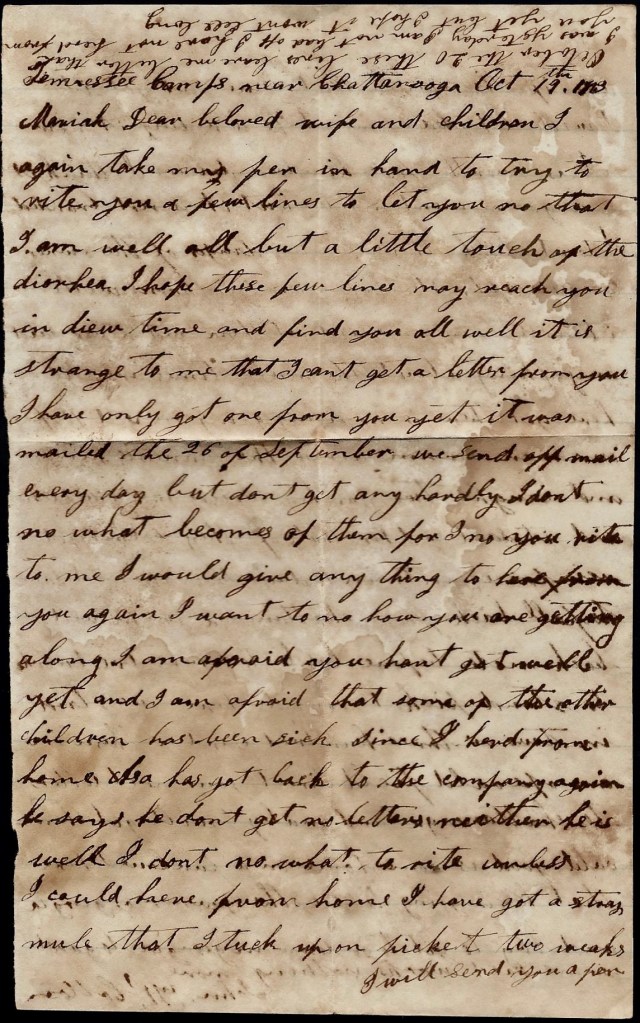 October the 20 these lines leave me better than
I was yesterday I am not bad off I have not herd from
you yet but I hope it wont bee long
Tennessee Camps near Chattanooga Oct 19th 1863
Mariah Dear beloved wife and children I
again take may pen in hand to try to
rite you a few lines to let you no that
I am well all but a little touch of the
diorhea I hope these few lines may reach you
in diew time and find you all well it is
strange to me that I cant get a letter from you
I have only got one from you yet it was
mailed the 26 of September we send off mail
every day but dont get any hardly I dont
no what becomes of them for I no you rite
to me I would give any thing to here from
you again I want to no how you are getting
along I am afraid you hant got well
yet and I am afraid that some of the other
children has been sick since I herd from
home Asa has got back to the company again
he says he dont get no letters neither he is
well I dont no what to rite unless
I could here from home I have got a stray
mule that I tuck up on picket two weaks
I will send you a pen